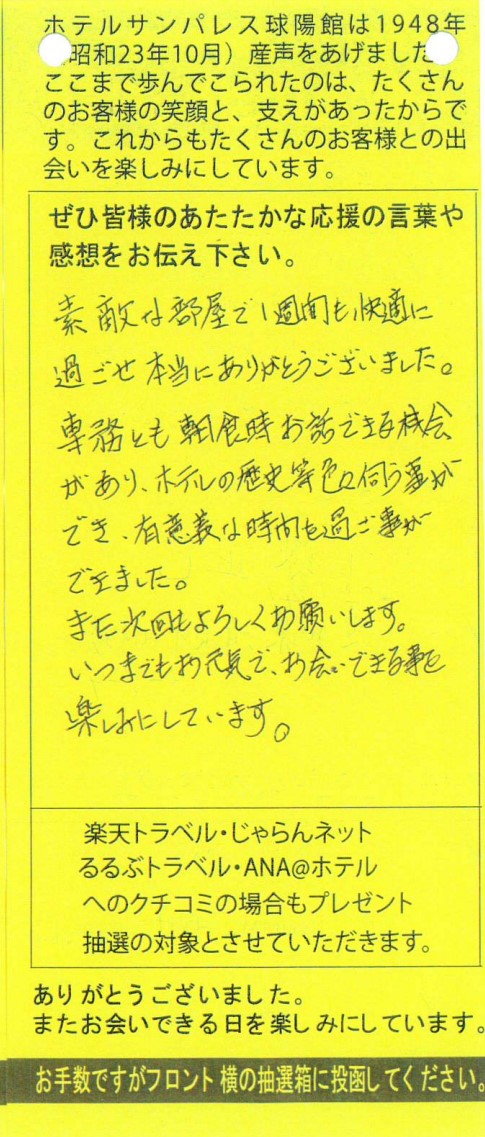 ホテルサンパレス球陽館は1948年
昭和23年10月）産声をあげました
ここまで歩んでこられたのは、たくさん
のお客様の笑顔と、支えがあったからで
す。これからもたくさんのお客様との出
会いを楽しみにしています。
ぜひ皆様のあたたかな応援の言葉や
感想をお伝え下さい。
素敵な部屋で1週間も快適に
過ごせ本当にありがとうございました。
専務とも朝食時お話できる機会
があり、ホテルの歴史等色々伺う事が
でき、有意義な時間も過ごす事が
できました。
また次回もよろしくお願いします。
いつまでもお元気で、お会いできる事を
楽しみにしています。
楽天トラベル・じゃらんネット
るるぶトラベル・ANA@ホテル
へのクチコミの場合もプレゼント
抽選の対象とさせていただきます。
ありがとうございました。
またお会いできる日を楽しみにしています。
お手数ですがフロント横の抽選箱に投函してください。